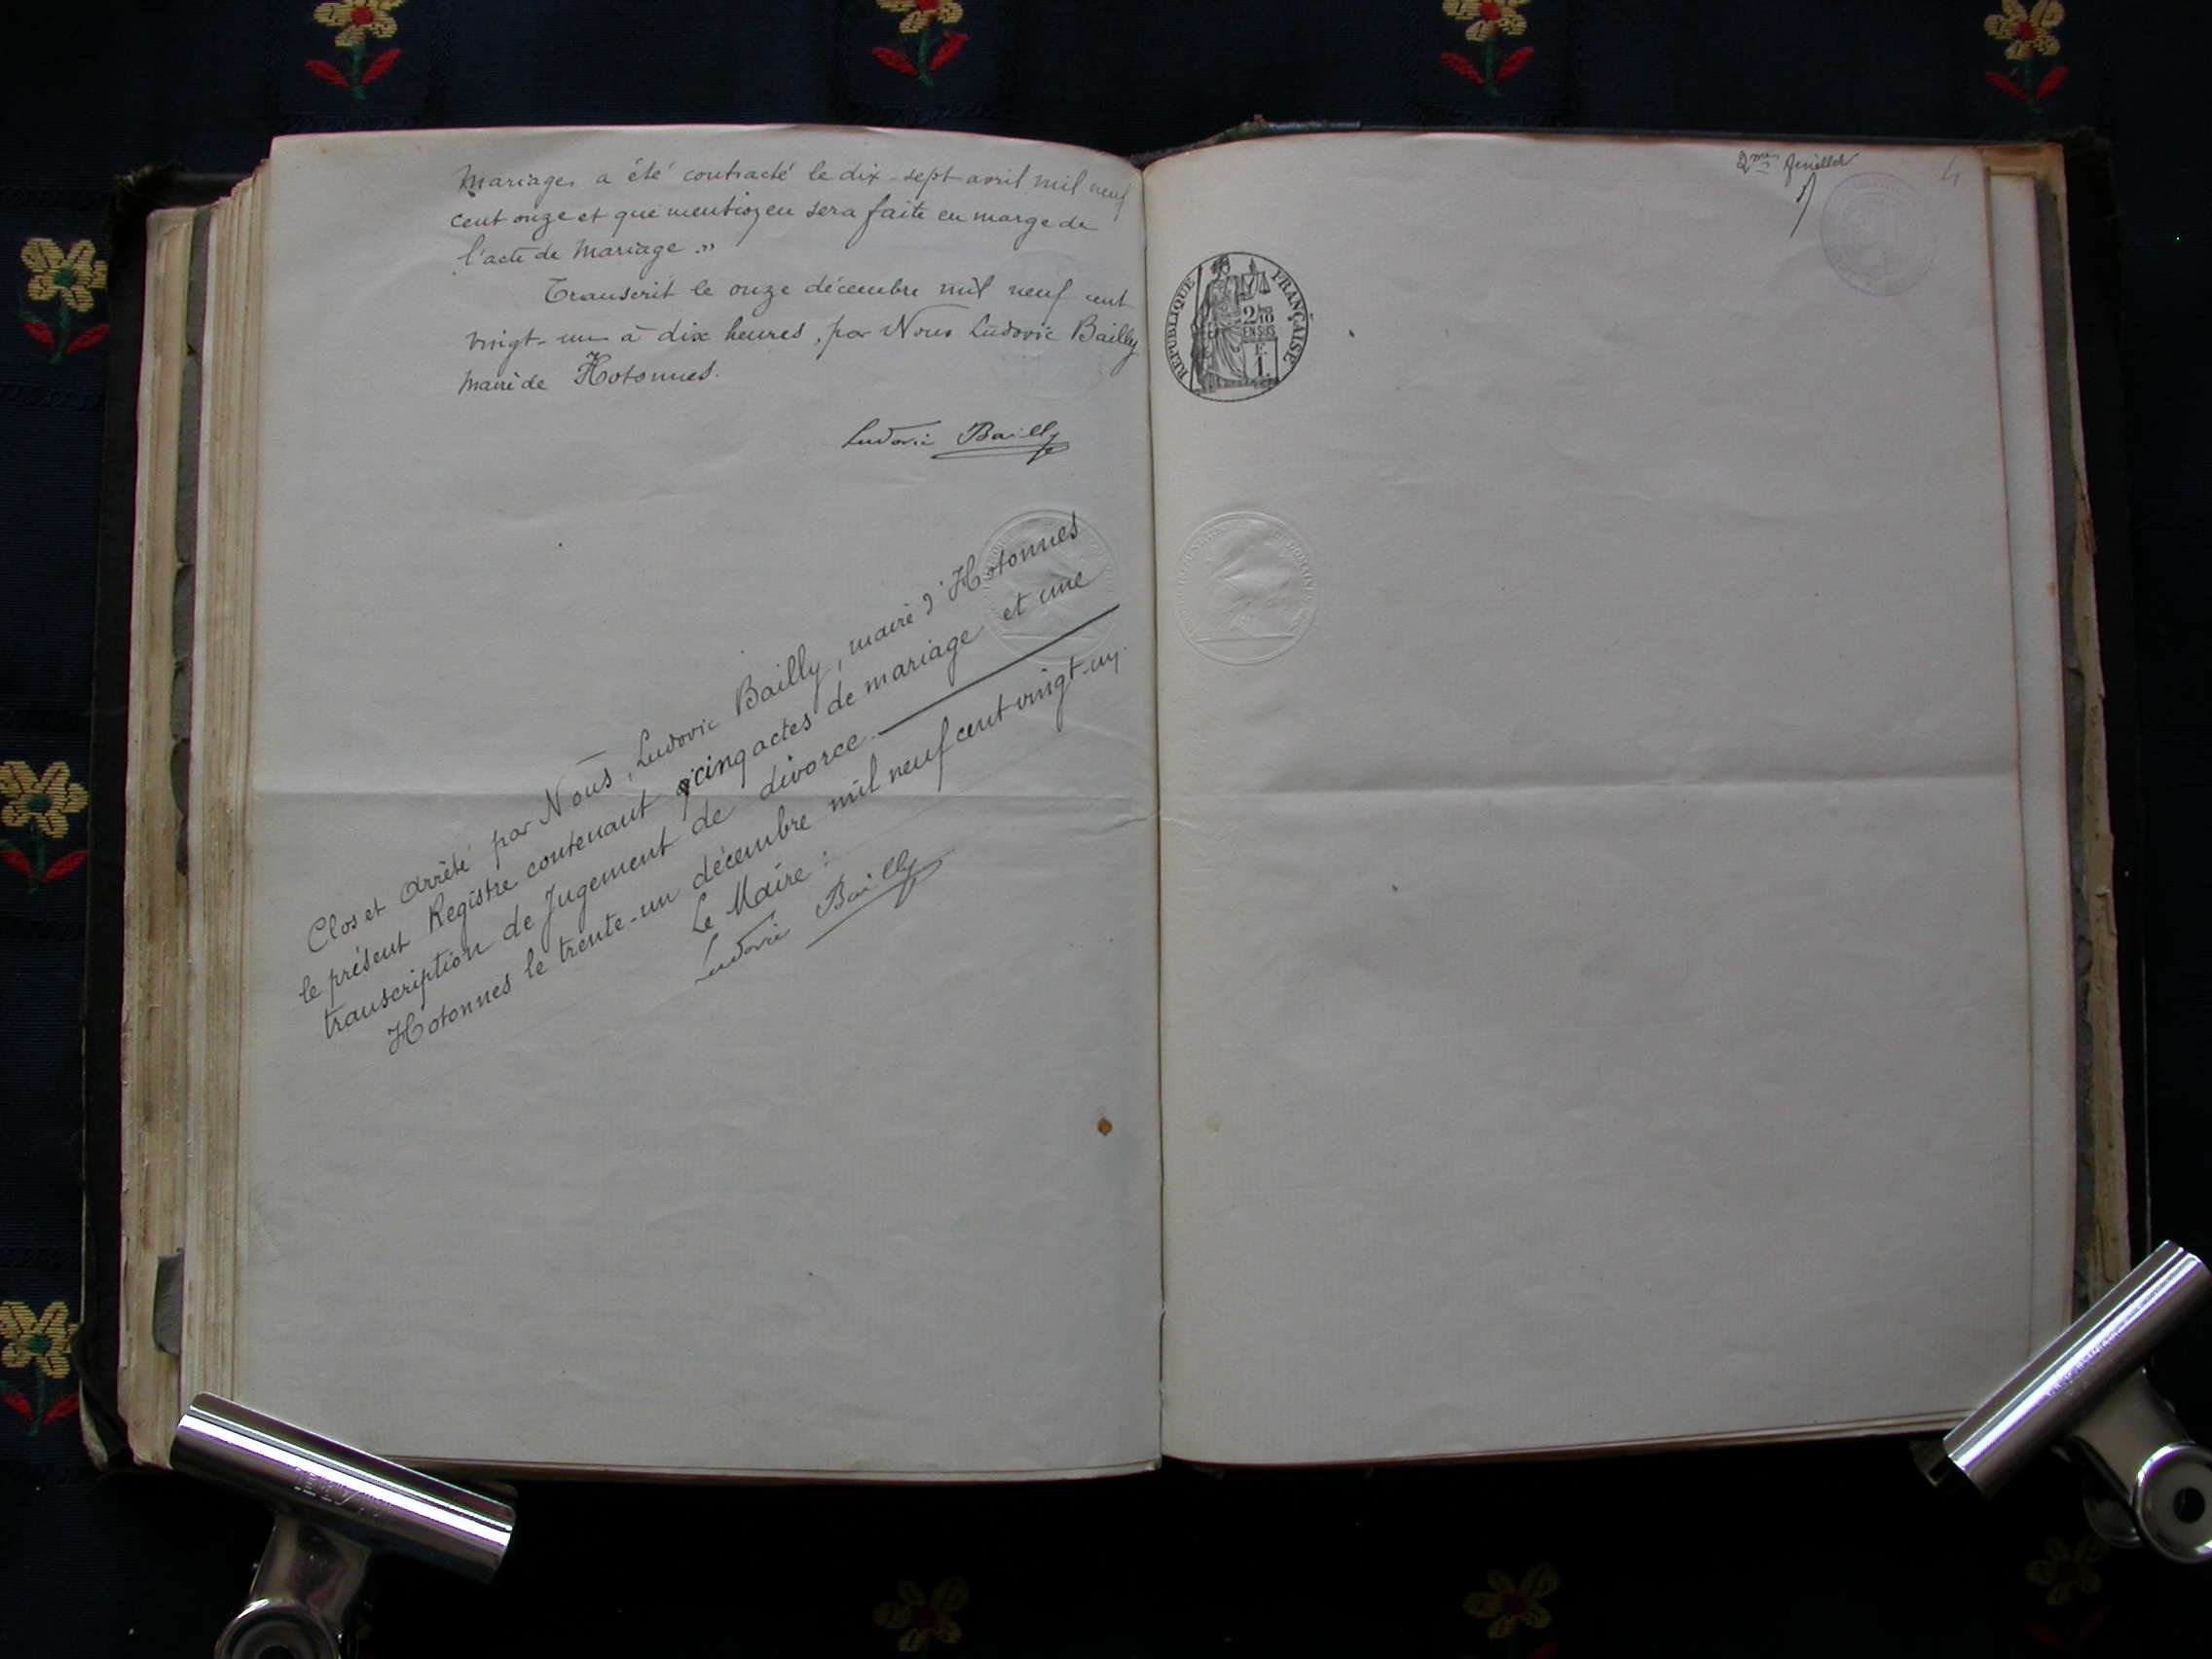 Mariage, a été contracté le dix-sept avril mil neuf
cent onze et que mention en sera faite en marge de
l'acte de Mariage."
Transcrit le onze décembre mil neuf cent
vingt-un à dix heures, par Nous Ludovic Bailly
Maire de Hotonnes.
Ludovic Bailly
Clos et Arrêté par Nous, Ludovic Bailly, maire d'Hotonnes
le présent Registre contenant cinq actes de mariage et une
transcription de Jugement de divorce.
Hotonnes le trente-un décembre mil neuf cent vingt-un.
Le Maire :
Ludovic Bailly
2me feuillet
4
REPUBLIQUE FRANÇAISE
2/10
EN SUS
F.
1.